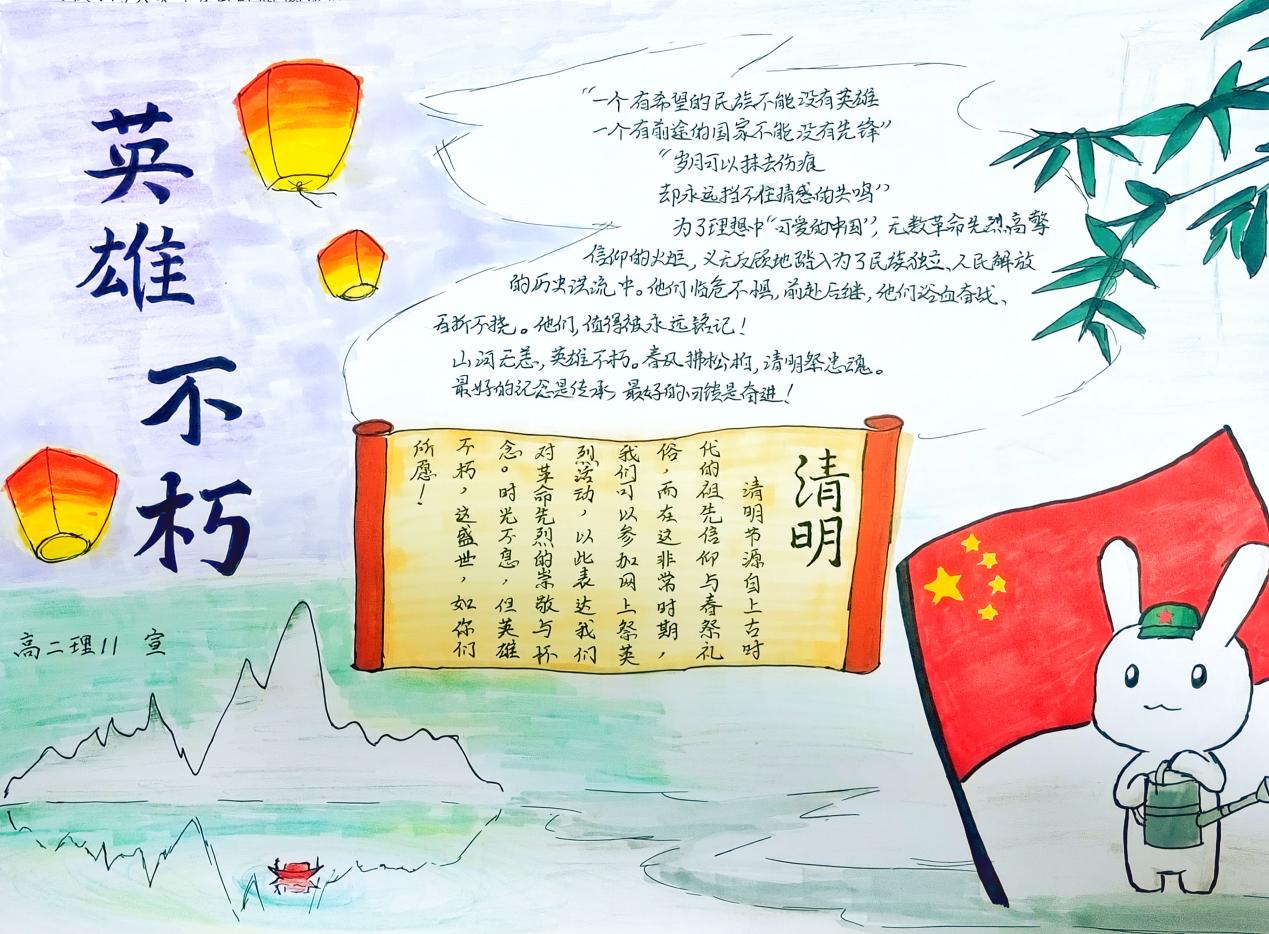 英雄
不朽
“一个有希望的民族不能没有英雄
一个有前途的国家不能没有先锋”
“岁月可以抹去伤痕
却永远挡不住情感的共鸣”
为了理想中“可爱的中国”，无数革命先烈高擎
信仰的火炬，义无反顾地踏入为了民族独立、人民解放
的历史洪流中。他们临危不惧，前赴后继，他们浴血奋战、
百折不挠。他们，值得被永远铭记！
山河无恙，英雄不朽。春风拂松柏，清明祭忠魂。
最好的纪念是传承，最好的回馈是奋进！
清明
清明节源自上古时
代的祖先信仰与春祭礼
俗，而在这非常时期，
我们可以参加网上祭英
烈活动，以此表达我们
对革命先烈的崇敬与怀
念。时光不息，但英雄
不朽，这盛世，如你们
所愿！
高二理11 宣